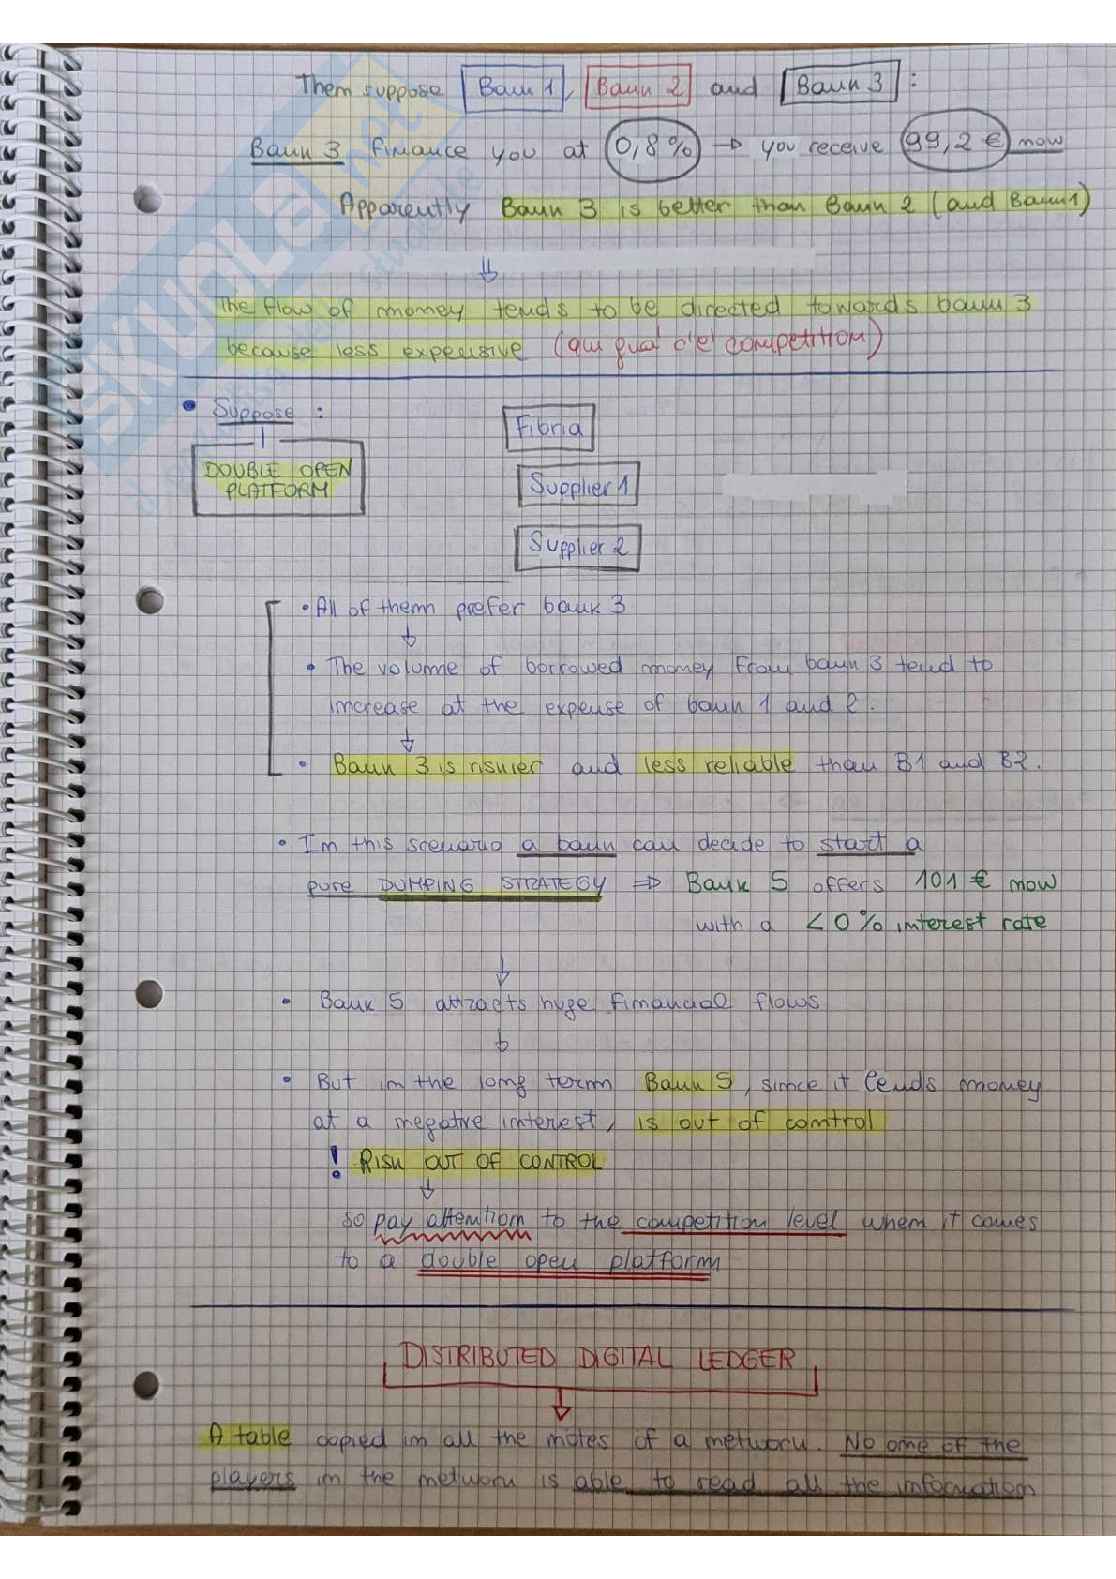 Them suppose Bank 1, Bank 2 and Bank 3 :
Bank 3 finance you at 0,8% → you receive 99,2 € now
Apparently Bank 3 is better than Bank 2 (and Bank 1)
The flow of money tends to be directed towards bank 3
because less expensive (qui qual è el competition)
• Suppose :
DOUBLE OPEN
PLATFORM
Fibria
Supplier 1
Supplier 2
• All of them prefer bank 3
• The volume of borrowed money from bank 3 tend to
increase at the expense of bank 1 and 2.
• Bank 3 is riskier and less reliable than B1 and B2.
• In this scenario a bank can decide to start a
pure DUMPING STRATEGY ⇒ Bank 5 offers 101 € now
with a <0% interest rate
• Bank 5 attracts huge financial flows
• But in the long term Bank 5, since it lends money
at a negative interest, is out of control
! RISK OUT OF CONTROL
so pay attention to the competition level when it comes
to a double open platform
DISTRIBUTED DIGITAL LEDGER
A table copied in all the notes of a network. No one of the
players in the network is able to read all the information
SKUOLA.net